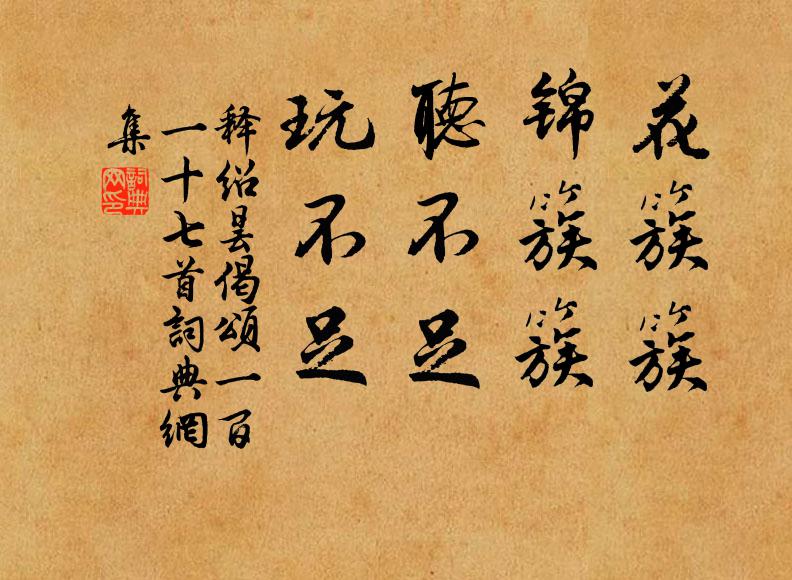 花簇簇
锦簇簇
聽不足
玩不足
释绍曇偈頌一百
一十七首詞典網
集
詞典
网印